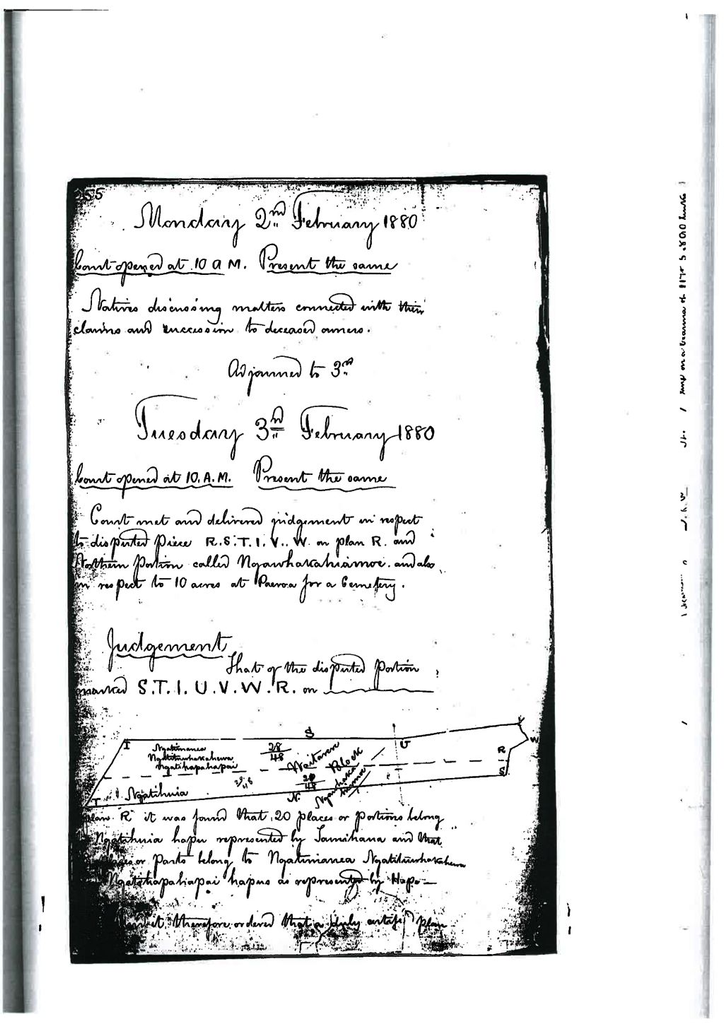 55
Monday 2nd February 1880
Court opened at 10 A M. Present the same
Natives discussing matters connected with their
claims and succession to deceased owners.
Adjourned to 3rd
Tuesday 3rd February 1880
Court opened at 10. A. M. Present the same
Court met and delivered judgement in respect
to disputed Piece R. S. T. I. V. W. on plan R. and
Northern Portion called Ngawhakahiamoe. and also
in respect to 10 acres at Paeroa for a Cemetery.
Judgement
That of the disputed Portion
marked S. T. I. U. V. W. R. on
I
S
U
V
W
R
S
T
28/48
Waitawa Block
20/48
N.
Ngatihuia
plan R it was found that 20 places or portions belong
Ngatihuia hapu represented by Tamihana and that
or parts belong to
hapus as represented by Hapo
therefore ordered that a plan